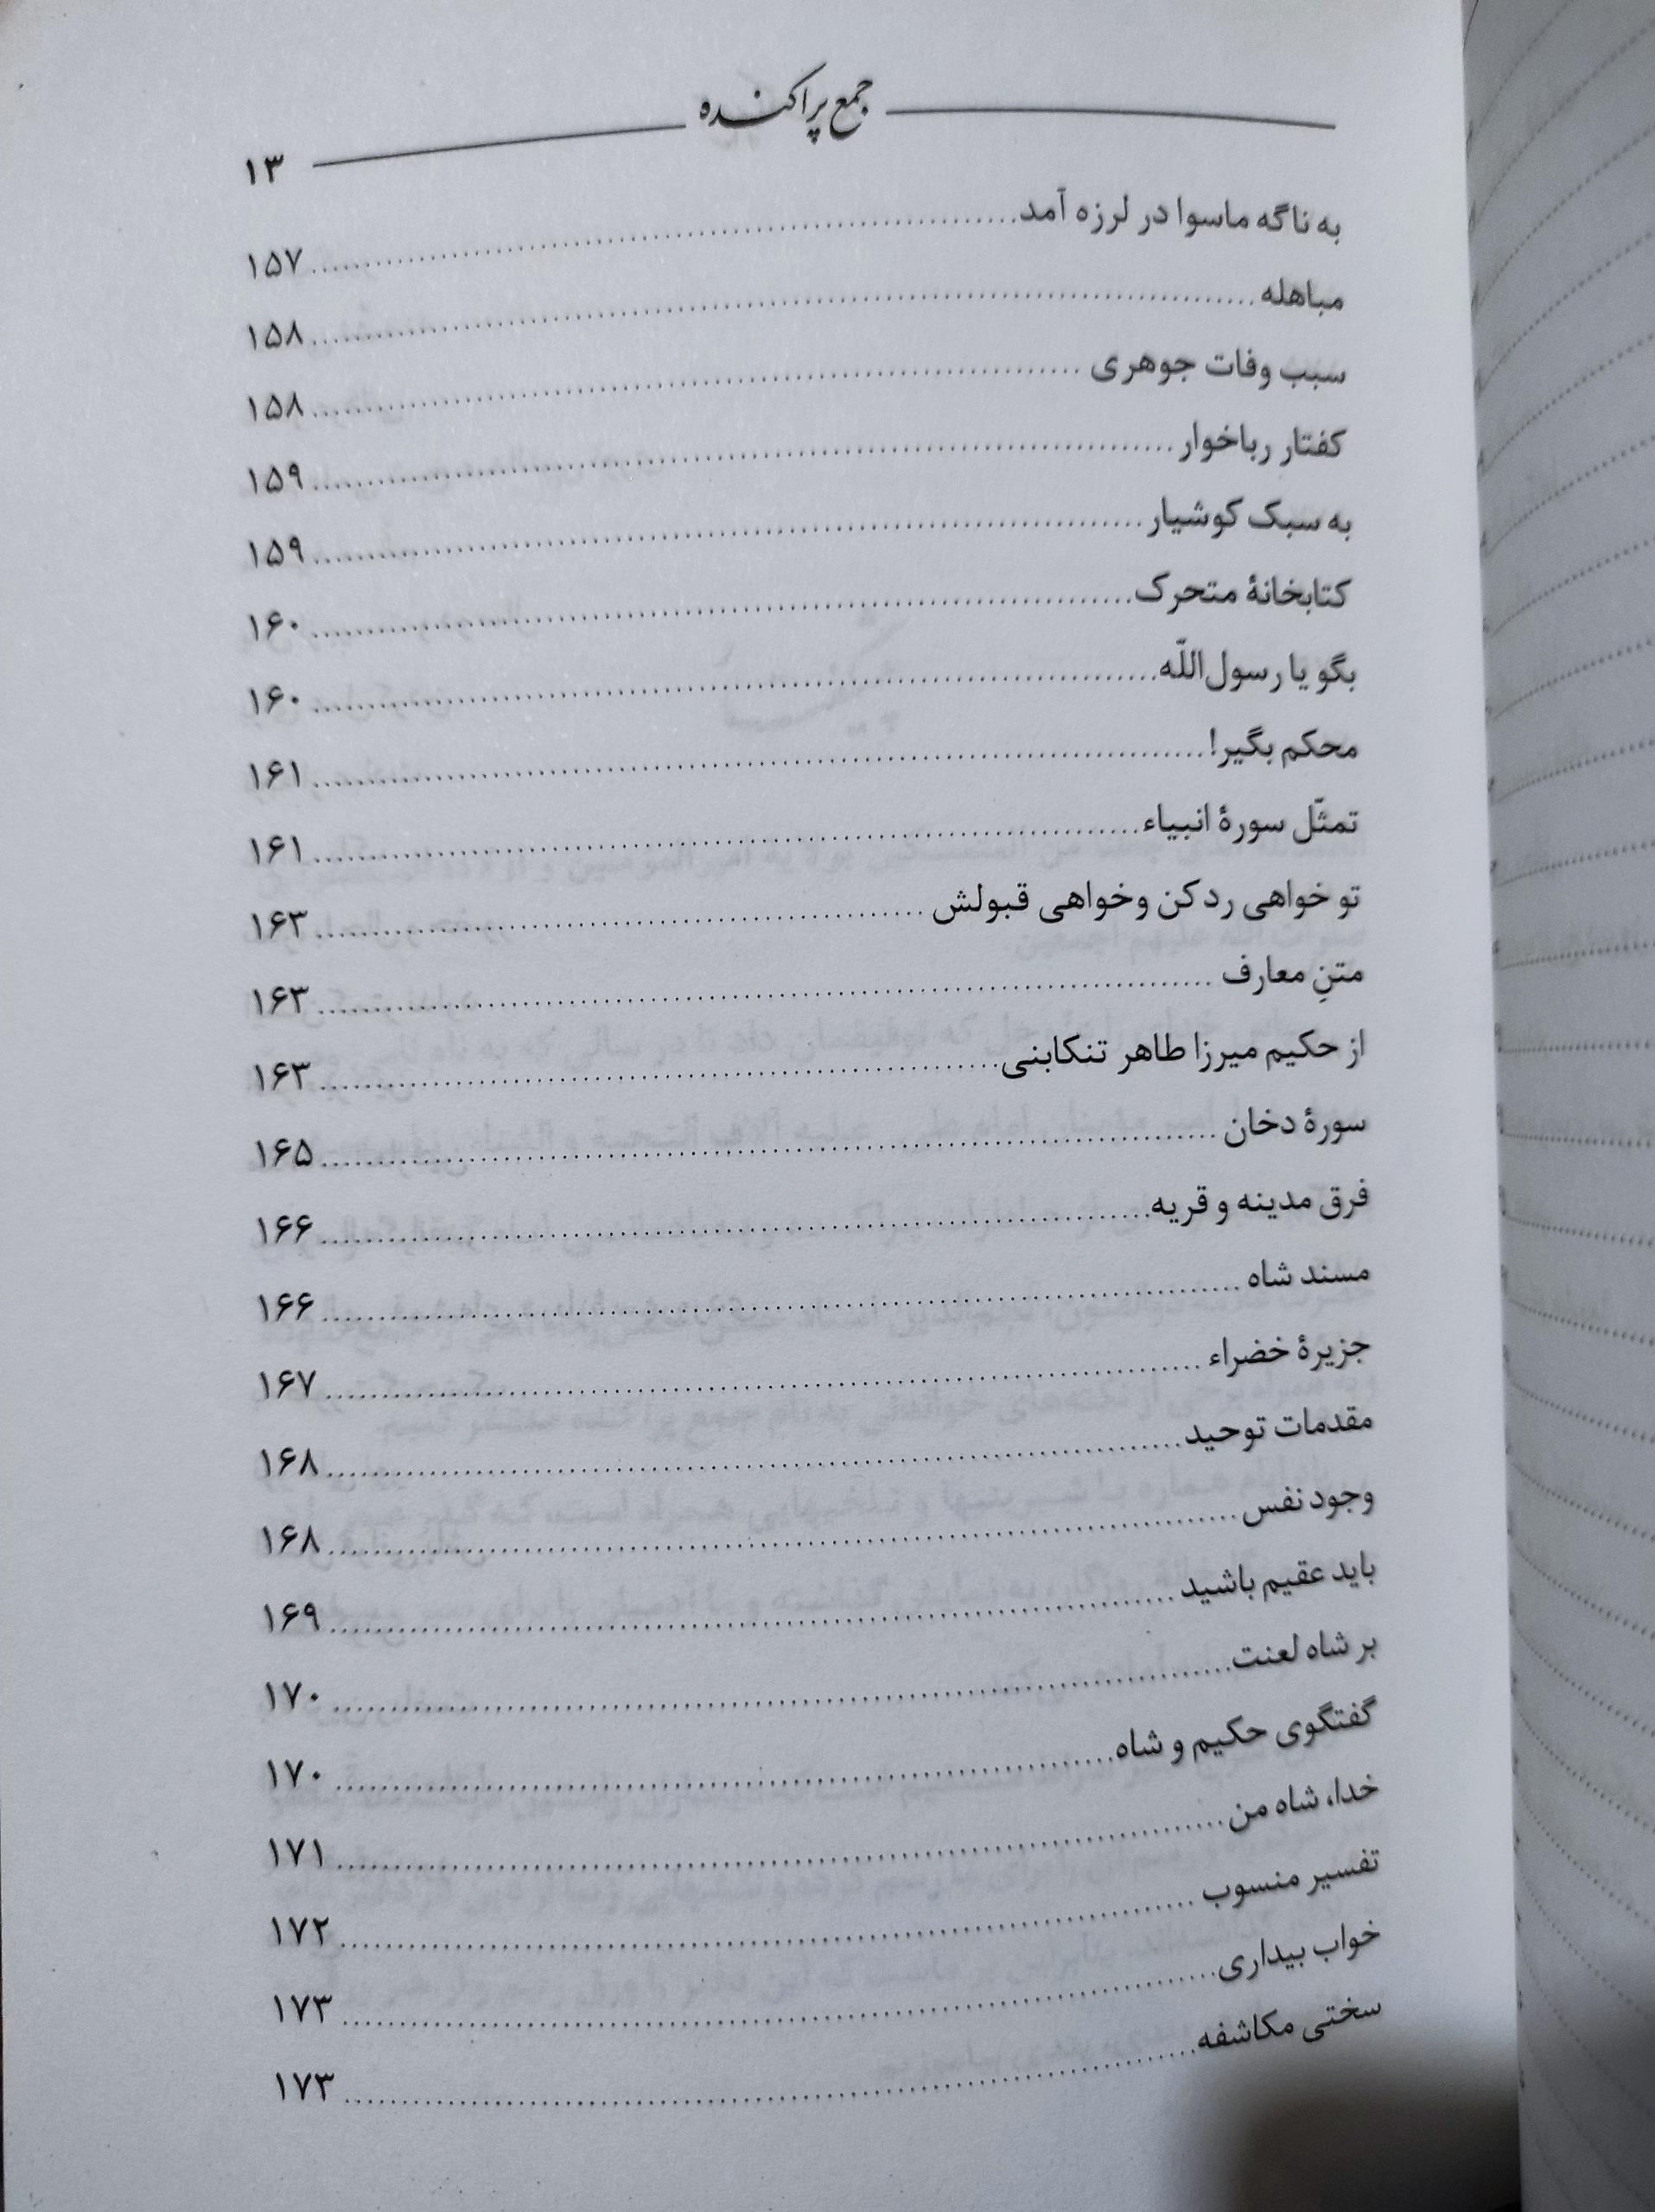 جمع پراکنده
۱۳
به ناگه ماسوا در لرزه آمد ۱۵۷
مباهله ۱۵۸
سبب وفات جوهری ۱۵۸
کفتار رباخوار ۱۵۹
به سبک کوشیار ۱۵۹
کتابخانهٔ متحرک ۱۶۰
بگو یا رسول‌اللّه ۱۶۰
محکم بگیر! ۱۶۱
تمثّل سورهٔ انبیاء ۱۶۱
تو خواهی رد کن و خواهی قبولش ۱۶۳
متنِ معارف ۱۶۳
از حکیم میرزا طاهر تنکابنی ۱۶۳
سورهٔ دخان ۱۶۵
فرق مدینه و قریه ۱۶۶
مسند شاه ۱۶۶
جزیرهٔ خضراء ۱۶۷
مقدمات توحید ۱۶۸
وجود نفس ۱۶۸
باید عقیم باشید ۱۶۹
بر شاه لعنت ۱۷۰
گفتگوی حکیم و شاه ۱۷۰
خدا، شاه من ۱۷۱
تفسیر منسوب ۱۷۲
خواب بیداری ۱۷۳
سختی مکاشفه ۱۷۳